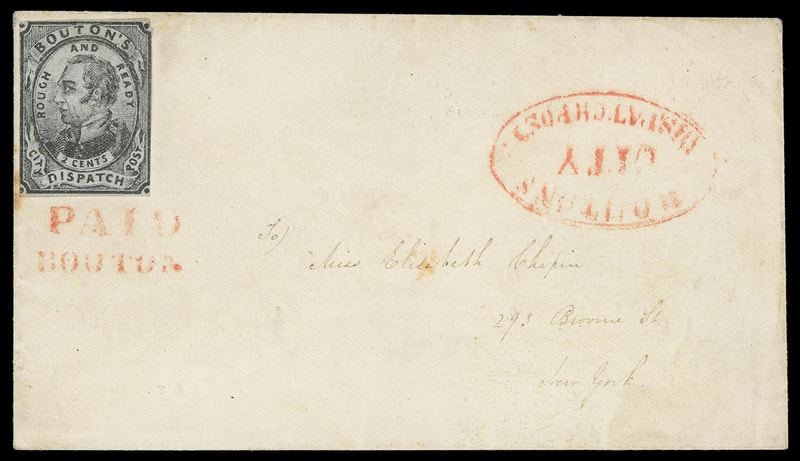 BOUTON'S
AND
ROUGH READY
2 CENTS
CITY DISPATCH POST
PAID
BOUTON.
BOUTON'S
CITY
DISPATCH POST.
To/
Miss Elizabeth Chapin
293 Broome St
New York